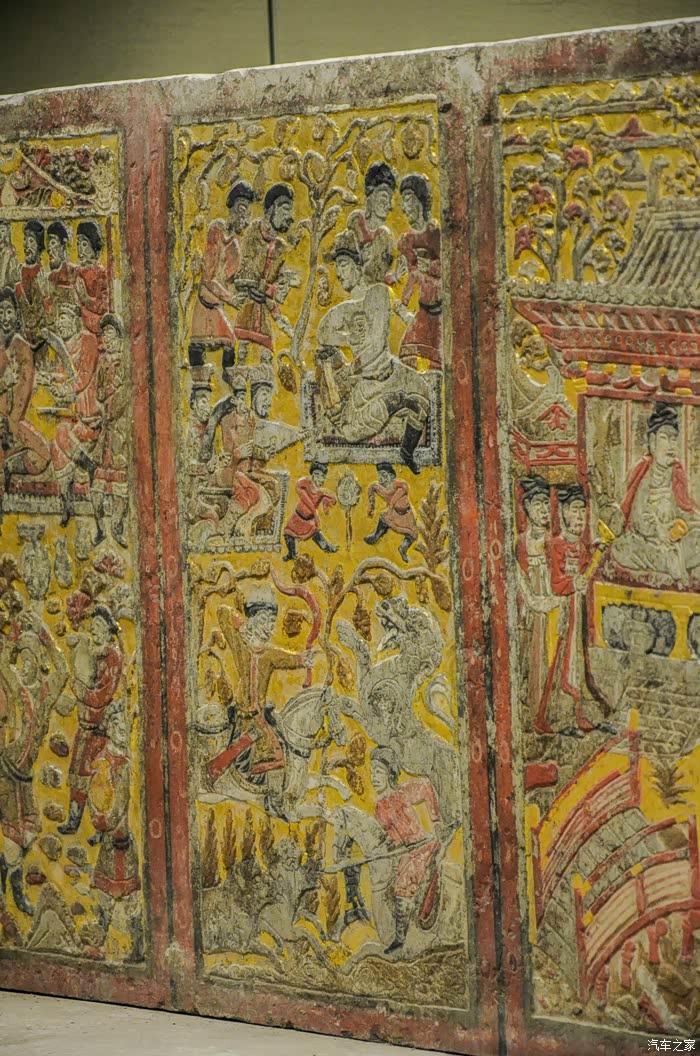 汽车之家